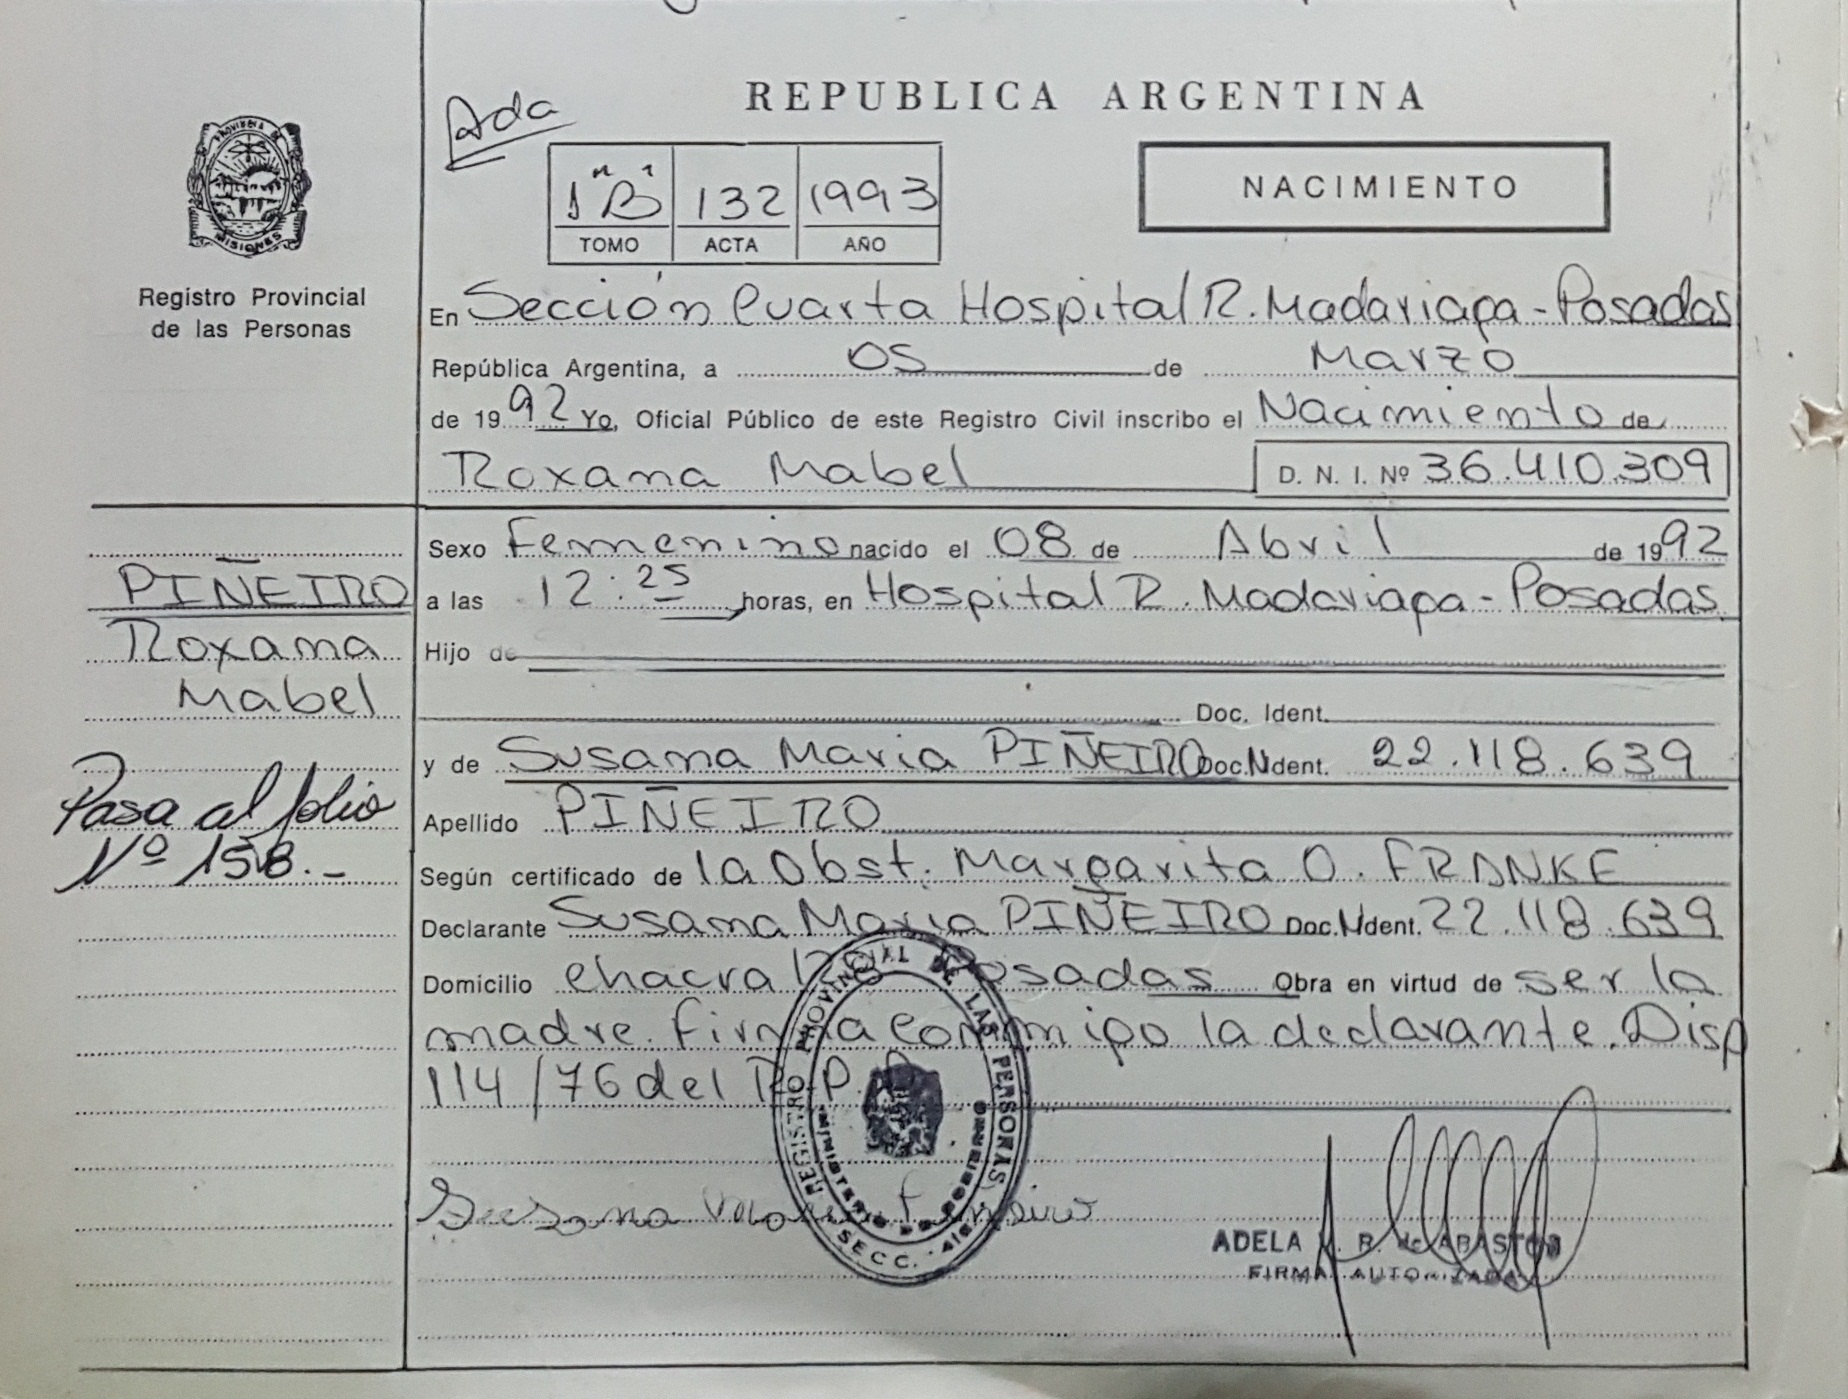 REPUBLICA ARGENTINA
Ada
1 "B" 132 1993
TOMO ACTA AÑO
NACIMIENTO
PROVINCIA DE
MISIONES
Registro Provincial
de las Personas
En Sección Cuarta Hospital R. Madariaga - Posadas
República Argentina, a 05 de Marzo
de 1992 Yo, Oficial Público de este Registro Civil inscribo el Nacimiento de
Roxana Mabel D. N. I. Nº 36.410.309
Sexo Femenino nacido el 08 de Abril de 1992
a las 12:25 horas, en Hospital R. Madariaga - Posadas
Hijo de
Doc. Ident.
y de Susana Maria PIÑEIRO Doc. Ndent. 22.118.639
Apellido PIÑEIRO
Según certificado de la Obst. Margarita O. FRANKE
Declarante Susana Maria PIÑEIRO Doc. Ndent. 22.118.639
Domicilio chacra Posadas Obra en virtud de ser la
madre. Firma conmigo la declarante. Disp
114/76 del R.P.
PIÑEIRO
Roxana
Mabel
Pasa al folio
Nº 158.-
REGISTRO PROVINCIAL DE LAS PERSONAS
MINISTERIO DE GOBIERNO
SECC. 4ta
Susana Maria Piñeiro
ADELA R. de ABASTOS
FIRMA AUTORIZADA